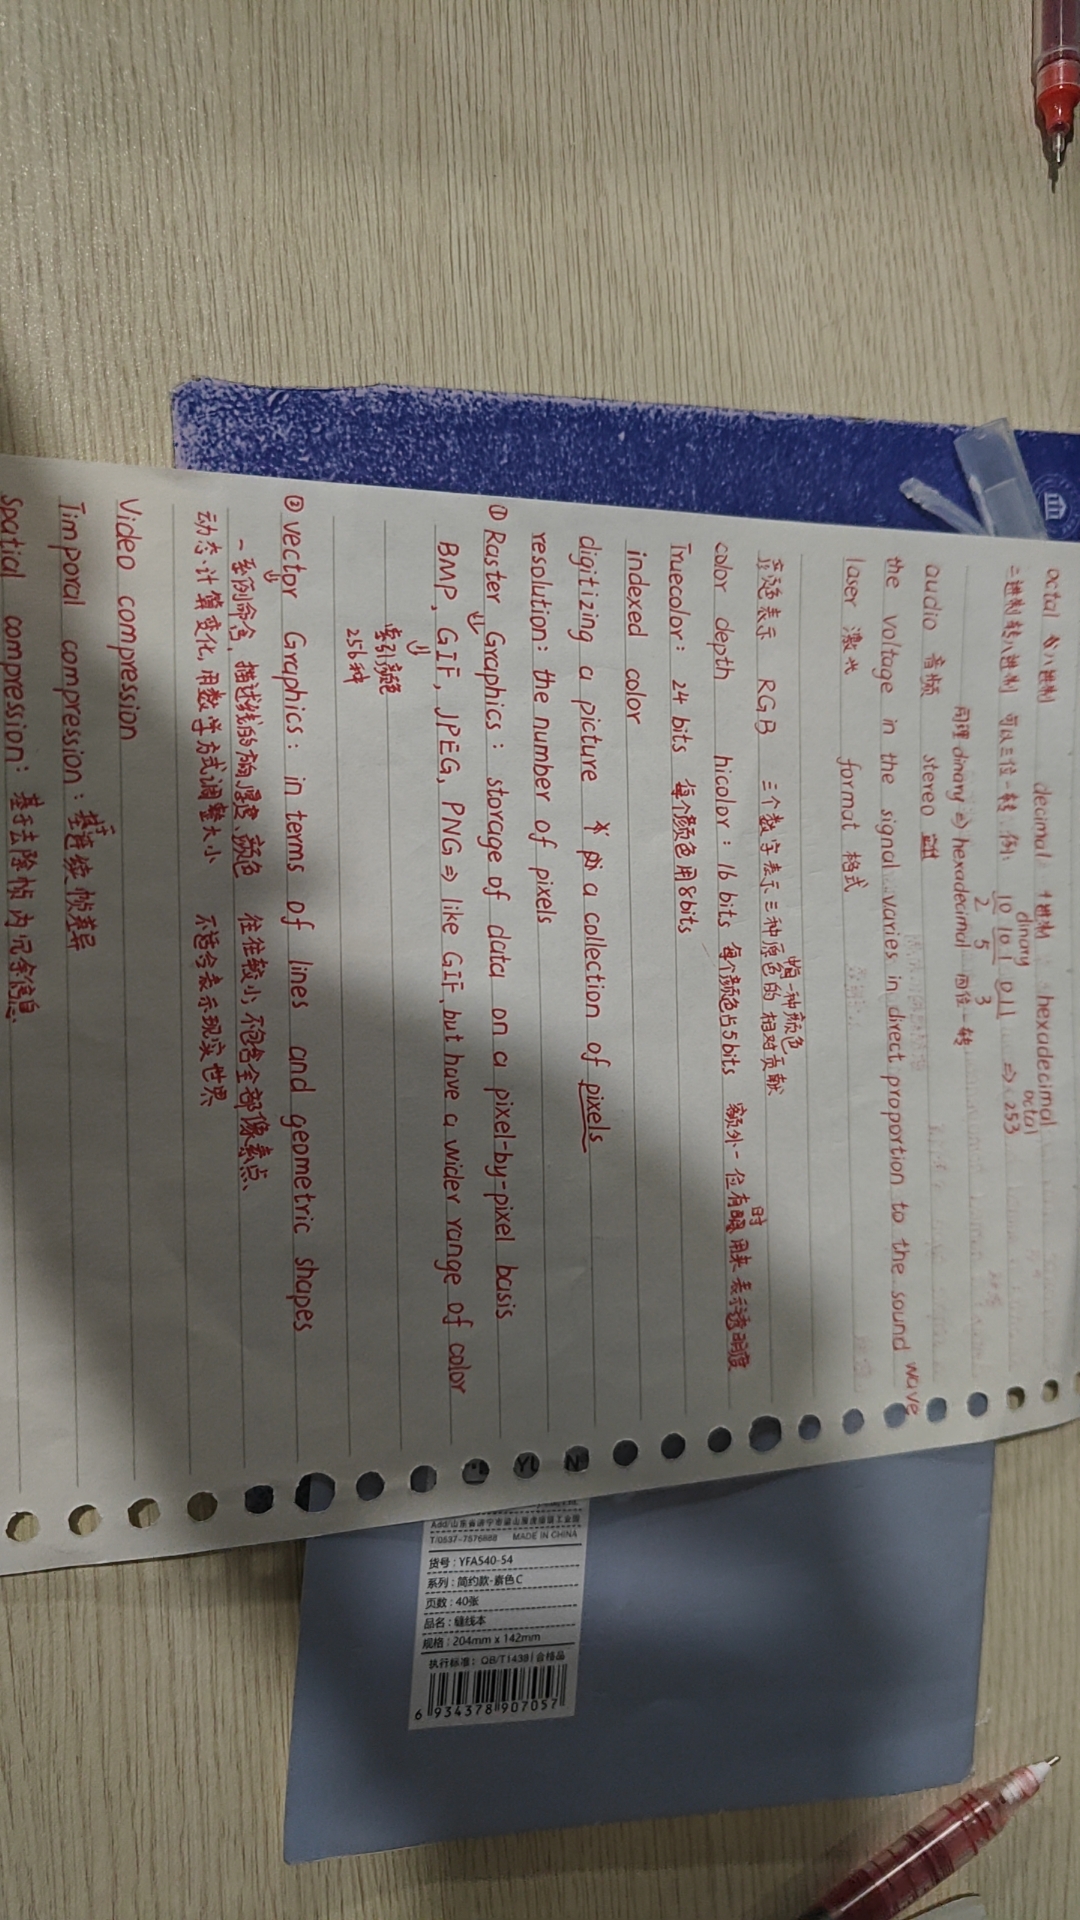 octal 八进制 decimal 十进制 hexadecimal
二进制转八进制 可以三位一转 例: 10 101 011 => 253
dinary octal
2 5 3
同理 dinary => hexadecimal 四位一转
audio 音频 stereo
the voltage in the signal varies in direct proportion to the sound wave
laser 激光 format 格式
表示 RGB 三个数字表示三种原色的相对贡献
每一种颜色
color depth hicolor: 16 bits 每个颜色占5bits 额外一位有时用来表示透明度
Truecolor: 24 bits 每个颜色用8bits
indexed color
digitizing a picture a collection of pixels
resolution: the number of pixels
① Raster Graphics: storage of data on a pixel-by-pixel basis
BMP, GIF, JPEG, PNG => like GIF, but have a wider range of color
索引颜色
256种
② Vector Graphics: in terms of lines and geometric shapes
一系列命令, 描述线的方向,厚度、颜色 往往较小, 不包含全部像素点、
动态计算变化, 用数学方式调整大小 不适合表示现实世界
Video compression
Timporal compression: 基于连续帧差异
Spatial compression: 基于去除帧内冗余信息.
T/0537-7576888 MADE IN CHINA
货号: YFA540-54
系列: 简约款-素色C
页数: 40张
品名: 缝线本
规格: 204mm x 142mm
执行标准: QB/T1438 合格品
6 934378 907057